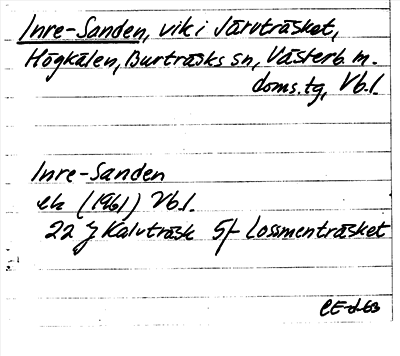 Inre-Sanden, vik i Järvträsket,
Högkälen, Burträsks sn, Västerb. m.
doms.tg, Vb.l.
Inre-Sanden
ek (1961) Vb.l.
22 J Kalvträsk 5f Lossmenträsket